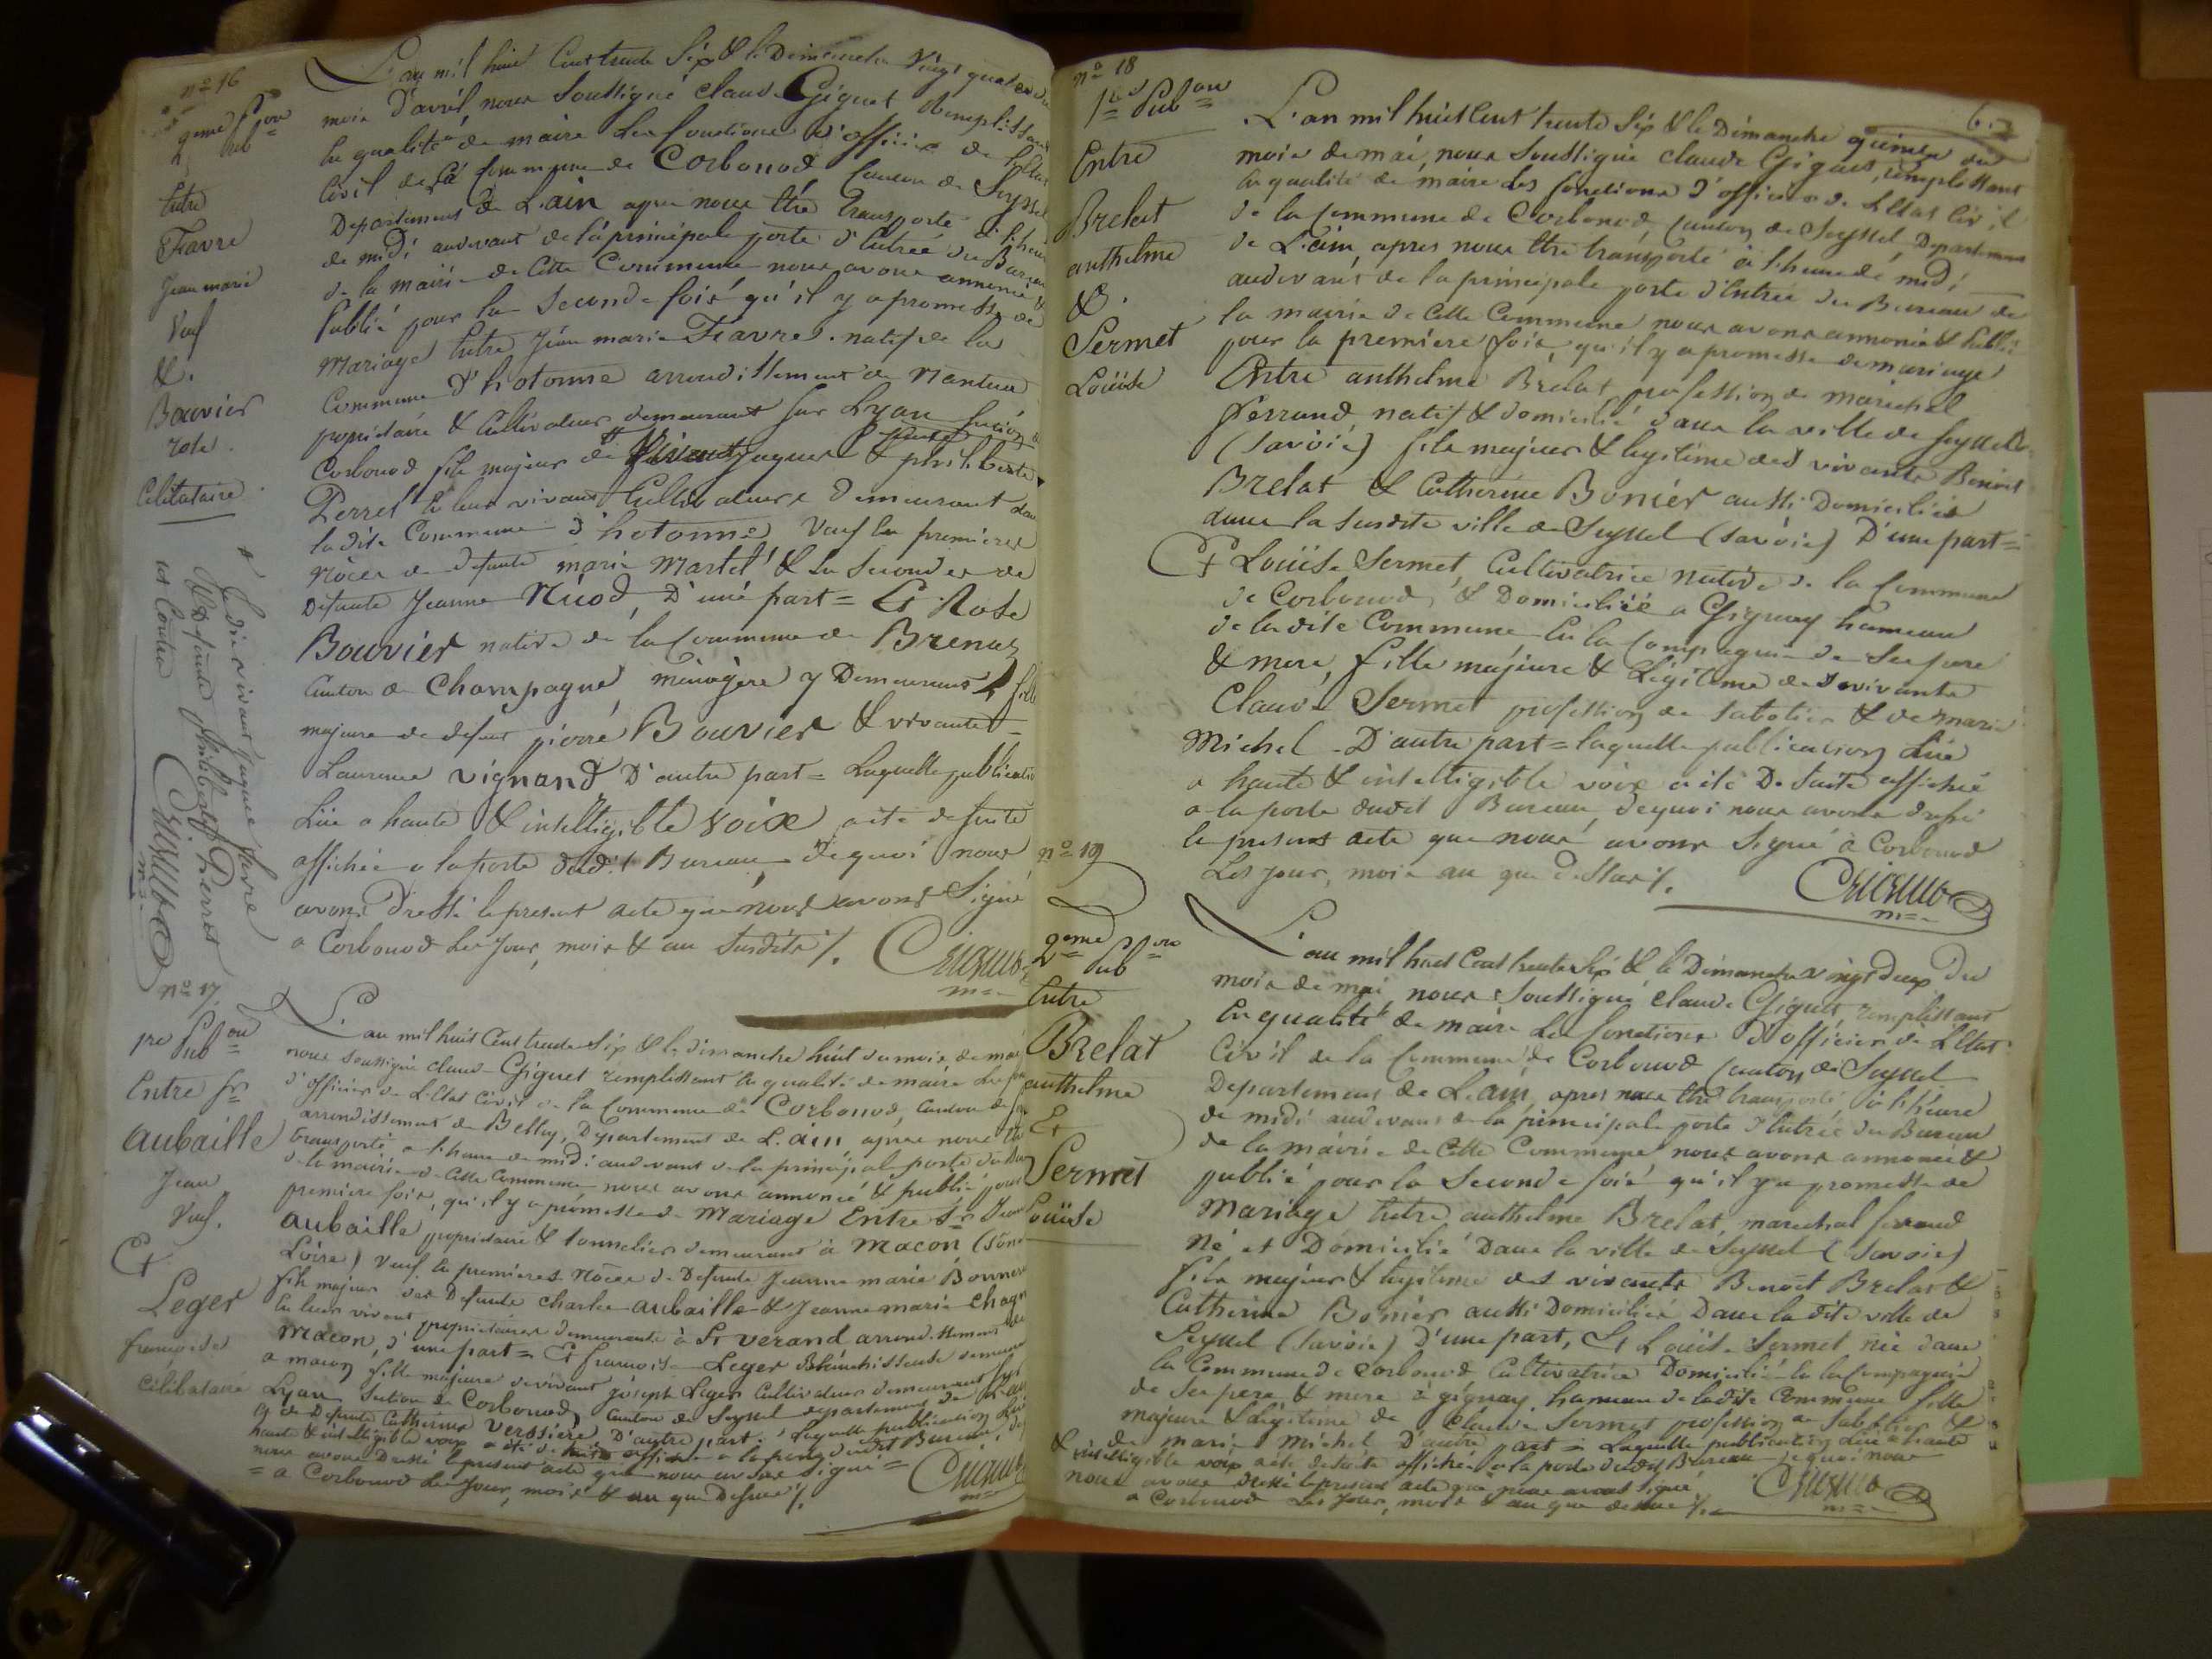 n° 16
2eme Pub on
Entre
Favre
Jean marie
Veuf
&.
Bouvier
rose.
Célibataire
L'an mil huit Cent trente Six & le Dimanche Vingt quatre du
mois D'avril, nous Soussigné Claude Giguet Remplissant
En qualité de maire Les fonctions d'officier de L'Etat
Civil de la Commune de Corbonod Canton de Seyssel
Departement de L'ain apres nous être transporté à l'heure
de midi audevant de la principale porte d'Entrée du Bureau
de la mairie de Cette Commune nous avons annoncé &
Publié pour la Seconde fois qu'il y a promesse de
Mariage Entre Jean marie Favre natif de la
Commune D'hotonne arrondissement de Nantua
propriétaire & Cultivateur demeurant Sur Lyan Section de
Corbonod fils majeur de Jaques & philiberte
Perret En leur vivant Cultivateurs Demeurant dans
la dite Commune d'hotonne, Veuf En premieres
Nôces de defunte marie Martel & En Secondes de
Defunte Jeanne Niod, D'une part = Et Rose
Bouvier native de la Commune de Brenaz
Canton de Champagne, ménagère y Demeurant, fille
majeure de defunt pierre Bouvier & vivante =
Laurence vignand D'autre part = Laquelle publication
Lüe a haute & intelligible voix a été de suite
affichée a la porte dudit Bureau, de quoi nous
avons Dressé le present acte que nous avons Signé
a Corbonod Les Jour, mois & an Susdits ./.
Giguet
m=
Je dis vivant Jaques favre
& Defunte philiberte Perret
Giguet
m=
n° 17
1re Pub on
Entre Sr
aubaille
Jean
Veuf.
Et
Leger
françoise
célibataire
L'an mil huit Cent trente Six & le dimanche huit du mois de mai
nous soussigné Claude Giguet remplissant En qualité de maire Les
d'officier de L'Etat Civil de la Commune de Corbonod, Canton de
arrondissement de Belley, Departement de L'ain, apres nous être
transporté a l'heure de midi audevant de la principale porte du Bureau
de la mairie de Cette Commune nous avons annoncé & publié pour
premiere fois, qu'il y a promesse de Mariage Entre Sr Jean
aubaille propriétaire & tonnelier demeurant à Macon (Sône
Loire) Veuf En premieres Nôces de Defunte Jeanne marie
fils majeur des Defunts Charles aubaille & Jeanne marie
En leur vivant propriétaires demeurants à St verand arrondissement de
Macon, d'une part = Et françoise Leger Blanchisseuse demeurant
a macon fille majeure de vivant joseph Leger Cultivateur demeurant Sur
Lyan Section de Corbonod, Canton de Seyssel departement de L'ain
& de Defunte Catherine Verssiere, D'autre part. Laquelle publication Lüe
haute & intelligible voix a été de suite affichée a la porte dudit Bureau, de
nous avons Dressé le present acte que nous avons Signé =
= a Corbonod Les Jour, mois & an que Dessus ./.
Giguet
m=
6.
n° 18
1re Pub on
Entre
Brelat
anthelme
&.
Sermet
Loüise
L'an mil huit Cent trente Six & le Dimanche quinze du
mois de mai, nous Soussigné Claude Giguet, remplissant
En qualité de maire les fonctions d'officier de L'Etat Civil
de la Commune de Corbonod, Canton de Seyssel Departement
de L'ain, apres nous être transporté à l'heure de midi
audevant de la principale porte d'Entrée du Bureau de
la mairie de Cette Commune nous avons annoncé & Publié
pour la premiere fois, qu'il y a promesse de mariage
Entre anthelme Brelat profession de maréchal
ferrand natif & domicilié dans la ville de Seyssel
(Savoie) fils majeur & legitime des vivants Benoit
Brelat & Catherine Bonier aussi Domiciliés
dans la susdite ville de Seyssel (Savoie) D'une part =
Et Loüise Sermet, Cultivatrice native de la Commune
de Corbonod, & Domiciliée a Gignay hameau
de la dite Commune En la Compagnie de Ses pere
& mere, fille majeure & Légitime des vivants
Claude Sermet profession de Sabotier & de marie
Michel D'autre part = laquelle publication Lüe
a haute & intelligible voix a été De Suite affichée
a la porte dudit Bureau, de quoi nous avons dressé
le present acte que nous avons Signé à Corbonod
Les Jour, mois an que Dessus ./.
Giguet
m=
n° 19
2eme Pub on
Entre
Brelat
anthelme
Et
Sermet
Loüise
L'an mil huit Cent trente Six & le Dimanche vingt deux Du
mois de mai, nous Soussigné Claude Giguet, remplissant
En qualité de maire Les fonctions D'officier de L'Etat
Civil de la Commune de Corbonod Canton de Seyssel
Departement de L'ain, apres nous être transporté, à l'heure
de midi audevant de la principale porte d'Entrée du Bureau
de la mairie de Cette Commune nous avons annoncé &
publié pour la Seconde fois qu'il y a promesse de
Mariage Entre anthelme Brelat, marechal ferrand
Né et Domicilié Dans la ville de Seyssel (Savoie)
fils majeur & legitime des vivants Benoit Brelat &
Catherine Bonier aussi Domiciliés Dans la dite ville de
Seyssel (Savoie) D'une part, Et Loüise Sermet née dans
la Commune de Corbonod Cultivatrice Domiciliée En la Compagnie
de Ses pere & mere a gignay, hameau de la dite Commune fille
majeure & Légitime de Claude Sermet profession de Sabotier &
de marie Michel D'autre part = Laquelle publication Lüe a haute
& intelligible voix a été de suite affichée à la porte dudit Bureau de quoi nous
nous avons dressé le present acte que nous avons Signé
a Corbonod Les Jour, mois & an que dessus ./.
Giguet
m=